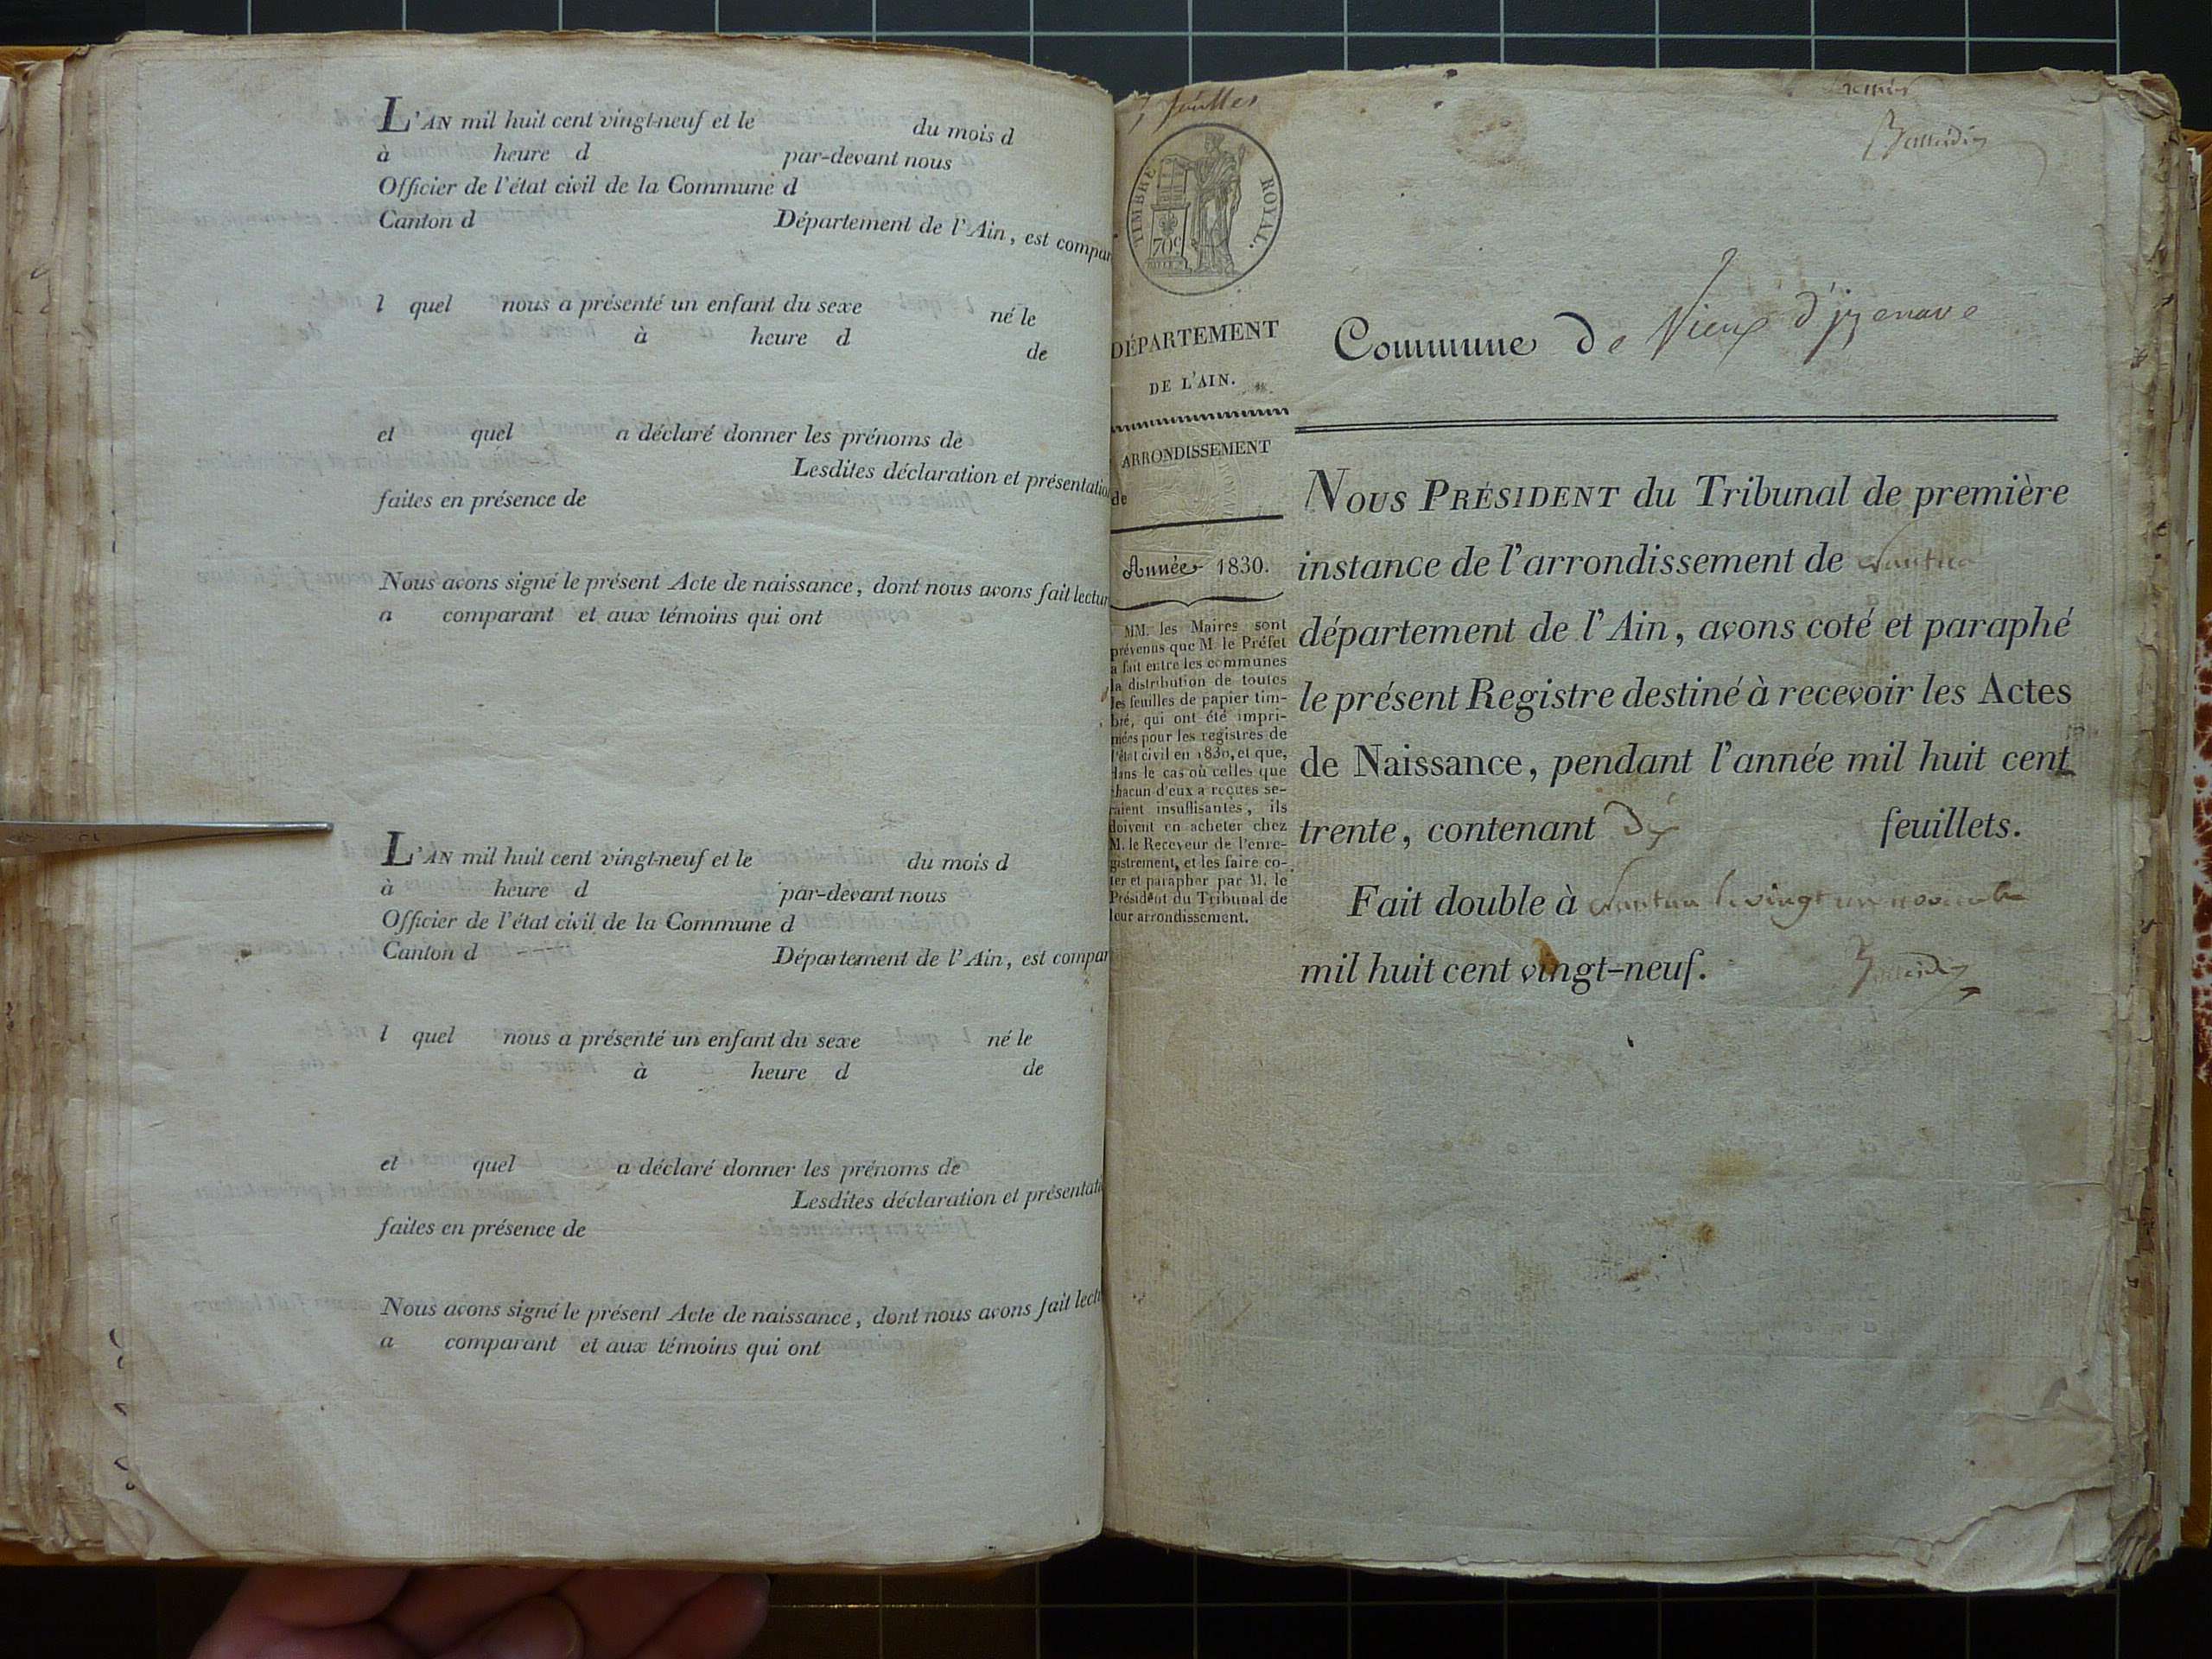 L'AN mil huit cent vingt-neuf et le du mois d
à heure d par-devant nous
Officier de l'état civil de la Commune d
Canton d Département de l'Ain, est compar
l quel nous a présenté un enfant du sexe né le
à heure d de
et quel a déclaré donner les prénoms de
Lesdites déclaration et présentation
faites en présence de
Nous avons signé le présent Acte de naissance, dont nous avons fait lectur
a comparant et aux témoins qui ont
L'AN mil huit cent vingt-neuf et le du mois d
à heure d par-devant nous
Officier de l'état civil de la Commune d
Canton d Département de l'Ain, est compar
l quel nous a présenté un enfant du sexe né le
à heure d de
et quel a déclaré donner les prénoms de
Lesdites déclaration et présentati
faites en présence de
Nous avons signé le présent Acte de naissance, dont nous avons fait lectu
a comparant et aux témoins qui ont
TIMBRE ROYAL.
70c
DÉPARTEMENT
DE L'AIN.
ARRONDISSEMENT
de
Année 1830.
MM. les Maires sont
prévenus que M. le Préfet
a fait entre les communes
la distribution de toutes
les feuilles de papier tim-
bré, qui ont été impri-
mées pour les registres de
l'état civil en 1830, et que,
dans le cas où celles que
chacun d'eux a reçues se-
raient insuffisantes, ils
doivent en acheter chez
M. le Receveur de l'enre-
gistrement, et les faire co-
ter et parapher par M. le
Président du Tribunal de
leur arrondissement.
Commune De Vieux d'izenave
NOUS PRÉSIDENT du Tribunal de première
instance de l'arrondissement de Nantua
département de l'Ain, avons coté et paraphé
le présent Registre destiné à recevoir les Actes
de Naissance, pendant l'année mil huit cent
trente, contenant Dix feuillets.
Fait double à Nantua le vingt un novembre
mil huit cent vingt-neuf.